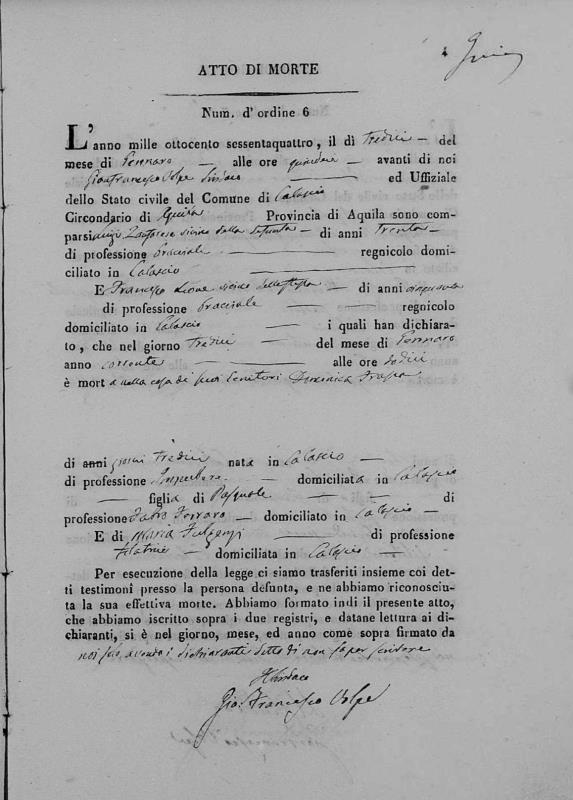 4
ATTO DI MORTE
Num. d'ordine 6
L'anno mille ottocento sessentaquattro, il dì Tredici — del
mese di Gennaro — alle ore quindici — avanti di noi
Gianfrancesco Volpe Sindaco — ed Uffiziale
dello Stato civile del Comune di Calascio
Circondario di Aquila Provincia di Aquila sono com-
parsi vicino della defunta — di anni Trenta —
di professione Bracciale — regnicolo domi-
ciliato in Calascio —
E Francesco Leone vicino della stessa — di anni cinquanta
di professione Bracciale — regnicolo
domiciliato in Calascio — i quali han dichiara-
to, che nel giorno Tredici — del mese di Gennaro
anno corrente — alle ore dodici
è morta nella casa di suoi Genitori Domenica Frasca
di anni giorni Tredici nata in Calascio —
di professione — domiciliata in Calascio
— figlia di Pasquale — — di
professione Fabro Ferraro — domiciliato in Calascio —
E di Maria Fulgenzi — di professione
Filatrice — domiciliata in Calascio —
Per esecuzione della legge ci siamo trasferiti insieme coi det-
ti testimonî presso la persona defunta, e ne abbiamo riconosciu-
ta la sua effettiva morte. Abbiamo formato indi il presente atto,
che abbiamo iscritto sopra i due registri, e datane lettura ai di-
chiaranti, si è nel giorno, mese, ed anno come sopra firmato da
noi solo, avendo i dichiaranti detto di non saper scrivere
Il Sindaco
Gio: Francesco Volpe